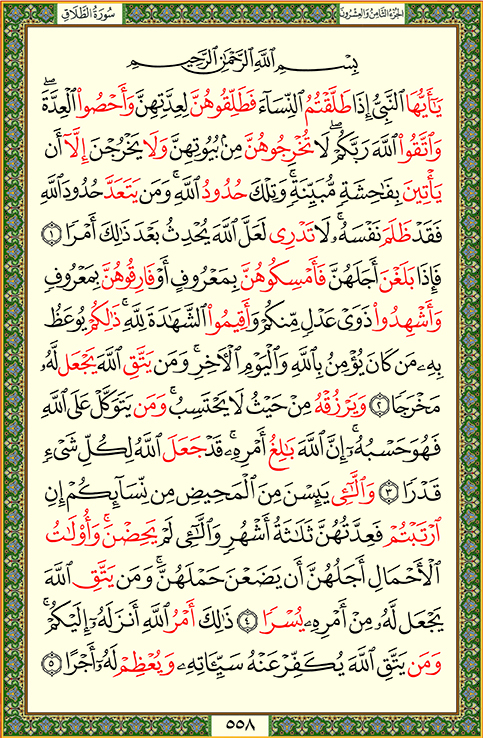 سُورَةُ الطَّلَاقِ
الجُزءُ الثَّامِنُ وَالعِشْرُونَ
بِسْمِ اللَّهِ الرَّحْمَٰنِ الرَّحِيمِ
يَٰٓأَيُّهَا ٱلنَّبِيُّ إِذَا طَلَّقْتُمُ ٱلنِّسَآءَ فَطَلِّقُوهُنَّ لِعِدَّتِهِنَّ وَأَحْصُوا۟ ٱلْعِدَّةَ ۖ
وَٱتَّقُوا۟ ٱللَّهَ رَبَّكُمْ ۖ لَا تُخْرِجُوهُنَّ مِنۢ بُيُوتِهِنَّ وَلَا يَخْرُجْنَ إِلَّآ أَن
يَأْتِينَ بِفَٰحِشَةٍ مُّبَيِّنَةٍ ۚ وَتِلْكَ حُدُودُ ٱللَّهِ ۚ وَمَن يَتَعَدَّ حُدُودَ ٱللَّهِ
فَقَدْ ظَلَمَ نَفْسَهُۥ ۚ لَا تَدْرِى لَعَلَّ ٱللَّهَ يُحْدِثُ بَعْدَ ذَٰلِكَ أَمْرًا ١
فَإِذَا بَلَغْنَ أَجَلَهُنَّ فَأَمْسِكُوهُنَّ بِمَعْرُوفٍ أَوْ فَارِقُوهُنَّ بِمَعْرُوفٍ
وَأَشْهِدُوا۟ ذَوَىْ عَدْلٍ مِّنكُمْ وَأَقِيمُوا۟ ٱلشَّهَٰدَةَ لِلَّهِ ۚ ذَٰلِكُمْ يُوعَظُ
بِهِۦ مَن كَانَ يُؤْمِنُ بِٱللَّهِ وَٱلْيَوْمِ ٱلْءَاخِرِ ۚ وَمَن يَتَّقِ ٱللَّهَ يَجْعَل لَّهُۥ
مَخْرَجًا ٢ وَيَرْزُقْهُ مِنْ حَيْثُ لَا يَحْتَسِبُ ۚ وَمَن يَتَوَكَّلْ عَلَى ٱللَّهِ
فَهُوَ حَسْبُهُۥٓ ۚ إِنَّ ٱللَّهَ بَٰلِغُ أَمْرِهِۦ ۚ قَدْ جَعَلَ ٱللَّهُ لِكُلِّ شَىْءٍ
قَدْرًا ٣ وَٱلَّٰٓـِٔى يَئِسْنَ مِنَ ٱلْمَحِيضِ مِن نِّسَآئِكُمْ إِنِ
ٱرْتَبْتُمْ فَعِدَّتُهُنَّ ثَلَٰثَةُ أَشْهُرٍ وَٱلَّٰٓـِٔى لَمْ يَحِضْنَ ۚ وَأُو۟لَٰتُ
ٱلْأَحْمَالِ أَجَلُهُنَّ أَن يَضَعْنَ حَمْلَهُنَّ ۚ وَمَن يَتَّقِ ٱللَّهَ
يَجْعَل لَّهُۥ مِنْ أَمْرِهِۦ يُسْرًا ٤ ذَٰلِكَ أَمْرُ ٱللَّهِ أَنزَلَهُۥٓ إِلَيْكُمْ ۚ
وَمَن يَتَّقِ ٱللَّهَ يُكَفِّرْ عَنْهُ سَيِّـَٔاتِهِۦ وَيُعْظِمْ لَهُۥٓ أَجْرًا ٥
٥٥٨